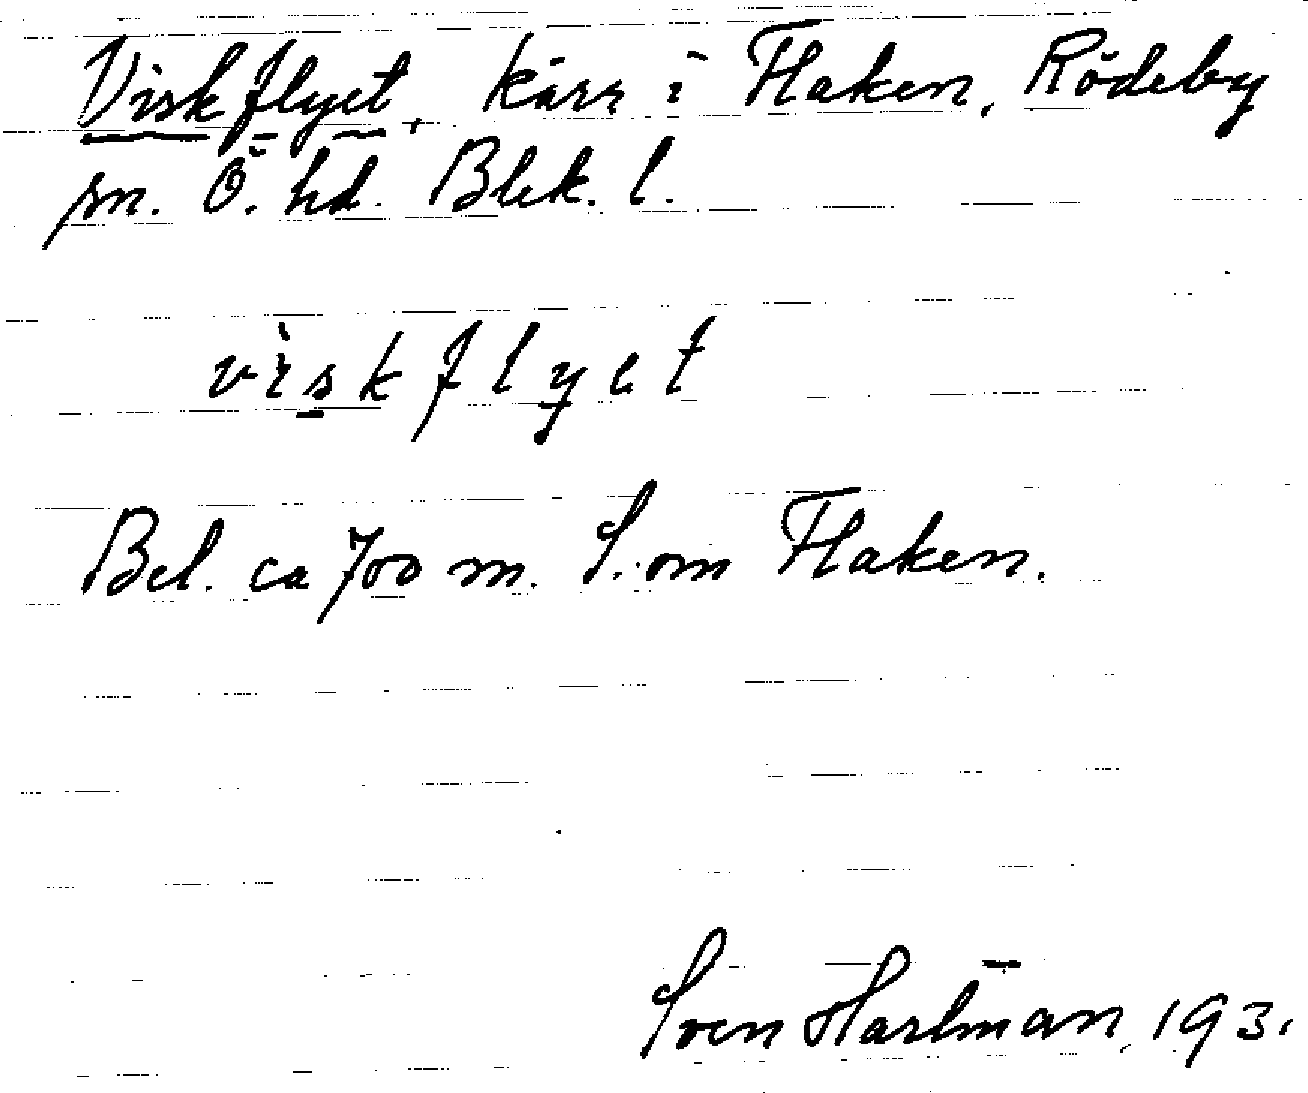 Viskflyet, kärr i Flaken, Rödeby
sn. Ö. hd. Blek. l.
vìskflyet
Bel. ca 700 m. S. om Flaken.
Sven Hartman, 193.